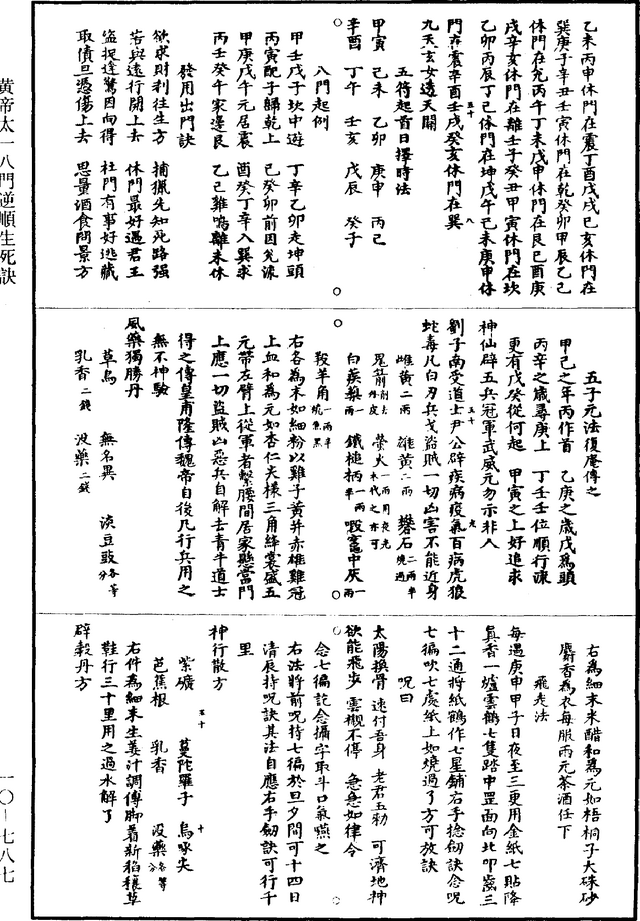 乙未丙申休門在震丁酉戊戌己亥休門在
巽庚子辛丑壬寅休門在乾癸卯甲辰乙巳
休門在兌丙午丁未戊申休門在艮己酉庚
戌辛亥休門在離壬子癸丑甲寅休門在坎
乙卯丙辰丁巳休門在坤戊午己未庚申休
門在震辛酉壬戌癸亥休門在巽
九天玄女透天關
五符起首日擇時法
甲寅　己未　乙卯　庚申　丙己
辛酉　丁午　壬亥　戊辰　癸子
八門起例
甲壬戊子坎中遊　丁辛乙卯走坤頭
丙寅配子歸乾上　己癸卯前因兌源
甲庚戊午元居震　酉癸丁辛入巽求
丙壬癸午家邊艮　乙己雞鳴離未休
發用出門訣
欲求財利往生方　捕獵先知死路强
若與遠行開上去　休門最好遇君王
盜捉逢驚因向得　杜門有事好逃藏
取債且憑傷上去　思量酒食問景方
五子元法復菴傳之
甲己之年丙作首　乙庚之歲戊爲頭
丙辛之歲尋庚上　丁壬壬位順行流
更有戊癸從何起　甲寅之上好追求
神仙辟五兵冠軍武威元勿示非人
劉子南受道士尹公辟疾病疫氣百病虎狼
蛇毒凡白刃兵戈盜賊一切凶害不能近身
雌黃二兩　雄黃二兩　礬石二兩半燒過
鬼箭削去外皮　螢火一兩用夜光木代之亦可
白蒺藜一兩　鐵槌柄一兩半　煅竈中灰一兩
羖羊角一兩半燒焦黑
右各爲末如細粉以雞子黃并赤雄雞冠
上血和爲元如杏仁大樣三角絳裳盛五
元帶左臂上從軍者繫腰間居家懸當門
上應一切盜賊凶惡兵自解去青牛道士
得之傳皇甫隆傳魏帝自後凡行兵用之
無不神驗
風藥獨勝丹
草烏　無名異　淡豆豉各等分
乳香二錢　沒藥二錢
右爲細末米醋和爲元如梧桐子大硃砂
麝香爲衣每服兩元茶酒任下
飛走法
每遇庚申甲子日夜至三更用金紙七貼降
眞香一爐雲鶴七隻踏中罡面向北叩齒三
十二通將紙鶴作七星鋪右手捻劒訣念呪
七徧吹七處紙上如燒過了方可放訣
呪曰
太陽換骨　速付吾身　老君五勑　可濟地神
欲能飛步　雲櫬不停　急急如律令
念七徧訖念攝字取斗口氣嚥之
右法將前呪持七徧於旦夕間可十四日
清辰持呪訣其法自應右手劒訣可行千
里
神行散方
紫礦　蔓陀羅子　烏啄尖
芭蕉根　乳香　沒藥各等分
右件爲細末生姜汁調傅脚着新稻穰草
鞋行三十里用之過水解了
辟穀丹方
黃帝太一八門逆順生死訣
一〇—七八七